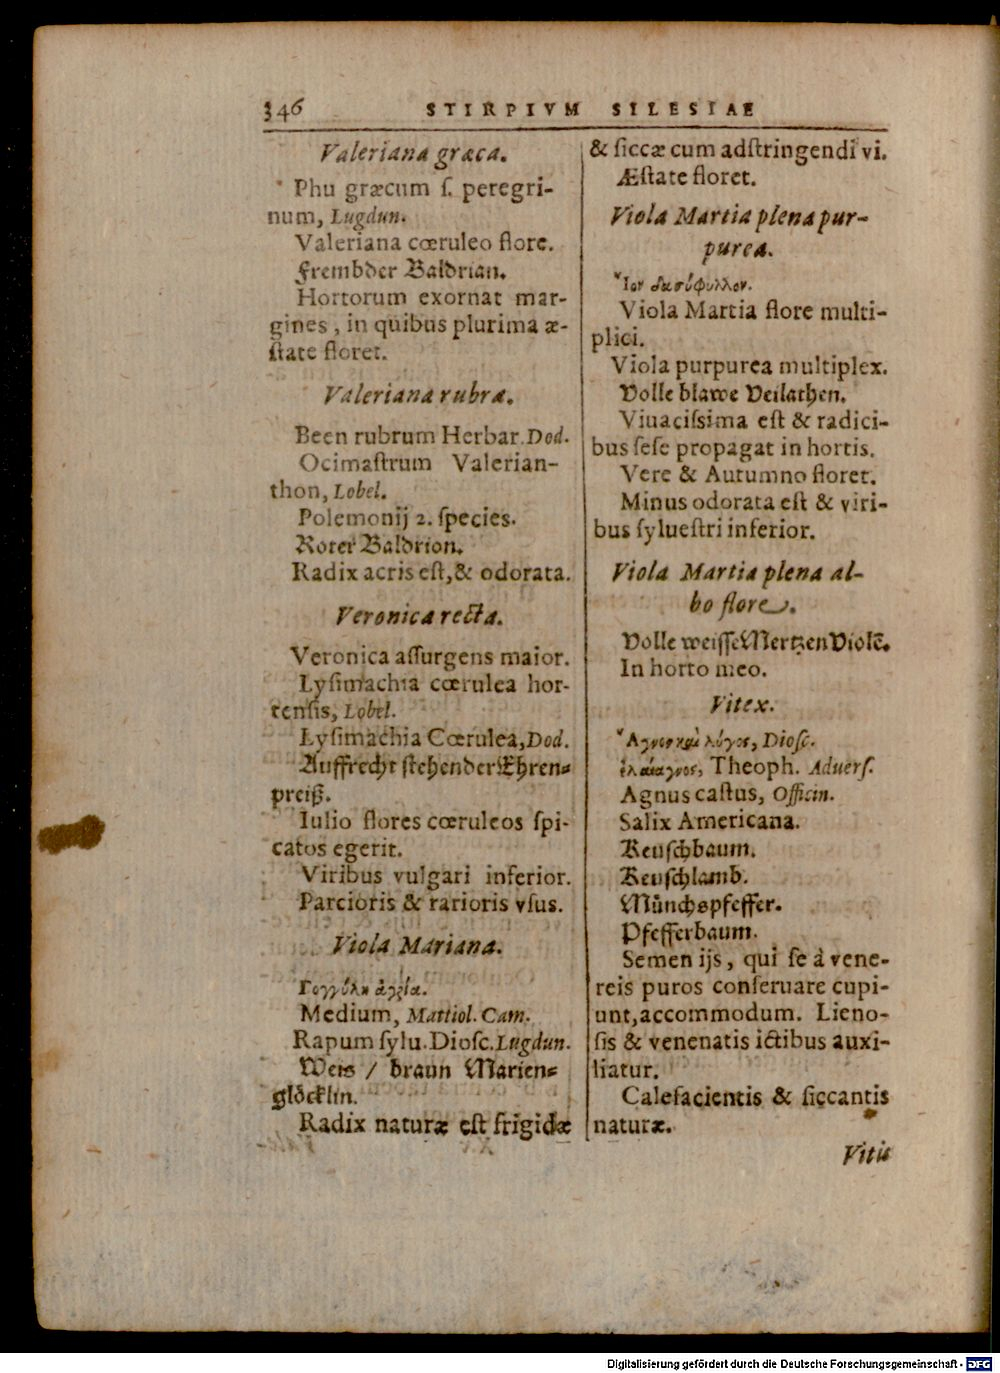 346 STIRPIVM SILESIAE
Valeriana græca.
Phu græcum ſ. peregri-
num, Lugdun.
Valeriana cœruleo flore.
Frembder Baldrian.
Hortorum exornat mar-
gines, in quibus plurima æ-
ſtate floret.
Valeriana rubra.
Been rubrum Herbar. Dod.
Ocimaſtrum Valerian-
thon, Lobel.
Polemonij 2. ſpecies.
Roter Baldrion.
Radix acris eſt, & odorata.
Veronica recta.
Veronica aſſurgens maior.
Lyſimachia cœrulea hor-
tenſis, Lobel.
Lyſimachia Cœrulea, Dod.
Auffrecht ſtehender Ehren⸗
preiß.
Iulio flores cœruleos ſpi-
catos egerit.
Viribus vulgari inferior.
Parcioris & rarioris vſus.
Viola Mariana.
Γογγύλη ἀγρία.
Medium, Mattiol. Cam.
Rapum ſylu. Dioſc. Lugdun.
Weis / braun Marien⸗
glöcklin.
Radix naturæ eſt frigidæ
& ſiccæ cum adſtringendi vi.
Æſtate floret.
Viola Martia plena pur-
purea.
Ἴον δασύφυλλον.
Viola Martia flore multi-
plici.
Viola purpurea multiplex.
Volle blawe Veilathen.
Viuaciſsima eſt & radici-
bus ſeſe propagat in hortis.
Vere & Autumno floret.
Minus odorata eſt & viri-
bus ſylueſtri inferior.
Viola Martia plena al-
bo flore.
Volle weiſſe Mertzen Violẽ.
In horto meo.
Vitex.
Ἄγνος καὶ λύγος, Dioſc.
ἐλαίαγνος, Theoph. Aduerſ.
Agnus caſtus, Officin.
Salix Americana.
Keuſchbaum.
Keuſchlamb.
Münchspfeffer.
Pfefferbaum.
Semen ijs, qui ſe à vene-
reis puros conſeruare cupi-
unt, accommodum. Lieno-
ſis & venenatis ictibus auxi-
liatur.
Calefacientis & ſiccantis
naturæ.
Vitis
Digitalisierung gefördert durch die Deutsche Forschungsgemeinschaft - DFG